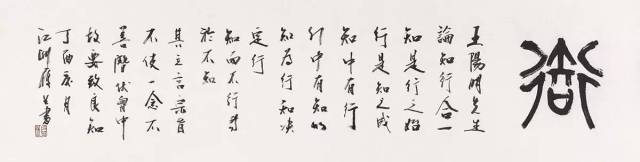 王陽明先生
論知行合一
知是行之始
行是知之成
知中有行
行中有知以
知為行知決
定行
知而不行等
於不知
其立言宗旨
不使一念不
善潛伏胸中
故要致良知
丁酉月
書